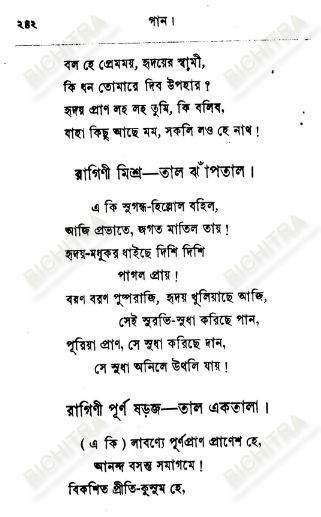 ২৪২ গান।
বল হে প্রেমময়, হৃদয়ের স্বামী,
কি ধন তোমারে দিব উপহার?
হৃদয় প্রাণ লহ লহ তুমি, কি বলিব,
যাহা কিছু আছে মম, সকলি লও হে নাথ!
রাগিণী মিশ্র—তাল ঝাঁপতাল।
এ কি সুগন্ধ-হিল্লোল বহিল,
আজি প্রভাতে, জগত মাতিল তায়!
হৃদয়-মধুকর ধাইছে দিশি দিশি
পাগল প্রায়!
বরণ বরণ পুষ্পরাজি, হৃদয় খুলিয়াছে আজি,
সেই সুরভি-সুধা করিছে পান,
পূরিয়া প্রাণ, সে সুধা করিছে দান,
সে সুধা অনিলে উথলি যায়!
রাগিণী পূর্ণ ষড়জ—তাল একতালা।
(এ কি) লাবণ্যে পূর্ণপ্রাণ প্রাণেশ হে,
আনন্দ বসন্ত সমাগমে!
বিকশিত প্রীতি-কুসুম হে,
BICHITRA